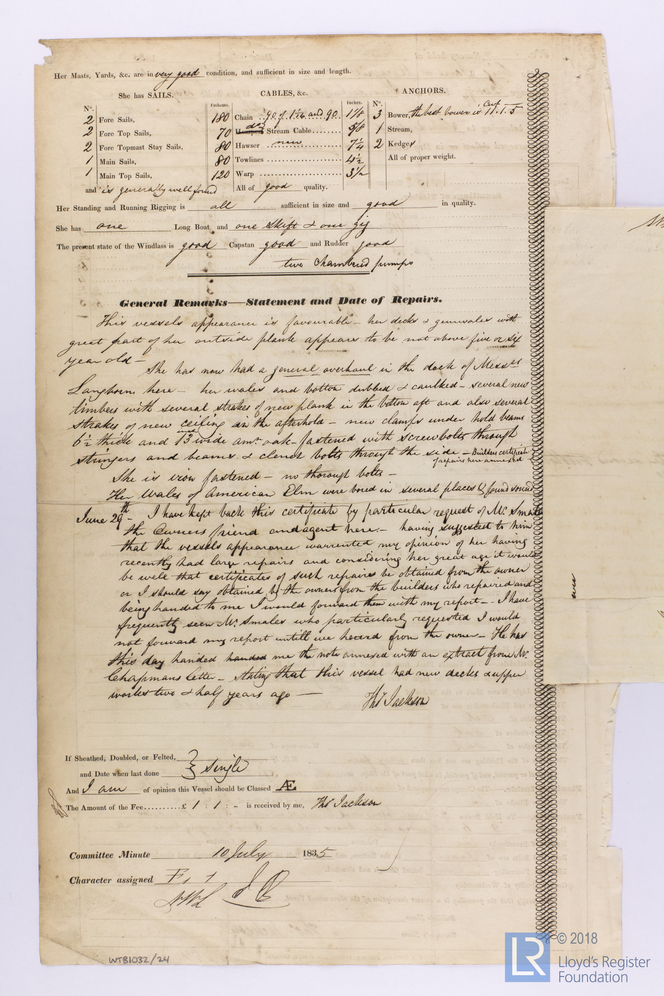 Her Masts, Yards, &c. are in very good condition, and sufficient in size and length.
She has SAILS.
CABLES, &c.
ANCHORS.
N°.
2 Fore Sails,
2 Fore Top Sails,
2 Fore Topmast Stay Sails,
1 Main Sails,
1 Main Top Sails,
and is generally well found
Fathoms.
Inches.
180 Chain 90 of 1 1/16 and 90. 1 1/8
70 Stream Cable
80 Hawser new 7 1/2
80 Towlines 4 1/2
120 Warp 3 1/2
All of good quality.
N°.
3 Bower, the best bower is Cwt 11.1.5
1 Stream,
2 Kedges
All of proper weight.
Her Standing and Running Rigging is all sufficient in size and good in quality.
She has one Long Boat and one skiff & one gig
The present state of the Windlass is good Capstan good and Rudder good
two Chambered pumps
General Remarks—Statement and Date of Repairs.
This vessels appearance is favourable – her decks & gunwales with
great part of her outside plank appears to be not above five or six
year old –
She has now had a general overhaul in the dock of Messrs
Langborn here – her wales and bottom dubbed & caulked – several new
timbers with several strakes of new plank in the bottom aft and also several
strakes of new ceiling in the afterhold – new clamps under hold beams
6 1/2 thick and 13 wide amn. oak fastened with screwbolts through
stringers and beams & clench bolts through the side – Builders certificate
of repairs here annexed
She is iron fastened – no thorough bolts –
Her Wales of American Elm were bored in several places & found sound
June 29th – I have kept back this certificate by particular request of Mr Smales
the Owners friend and agent here – having suggested to him
that the vessels appearance warrented my opinion of her having
recently had large repairs and considering her great age it would
be well that certificates of such repairs be obtained from the owner
or I should say obtained by the owners from the builders who repaired and
being handed to me I would forward them with my report – I have
frequently seen Mr. Smales who particularly requested I would
not forward my report untill we heard from the owner – He has
this day handed handed me the note annexed with an extract from Mr.
Chapmans letter – stating that this vessel had new decks & upper
works two & half years ago –
Thos Jackson
If Sheathed, Doubled, or Felted,
and Date when last done } single
And I am of opinion this Vessel should be Classed Æ
The Amount of the Fee..........£ 1 : 1 : – is received by me, Thos Jackson
Committee Minute 10 July 1835
Character assigned
WTB1032/24
LR
© 2018
Lloyd's Register
Foundation